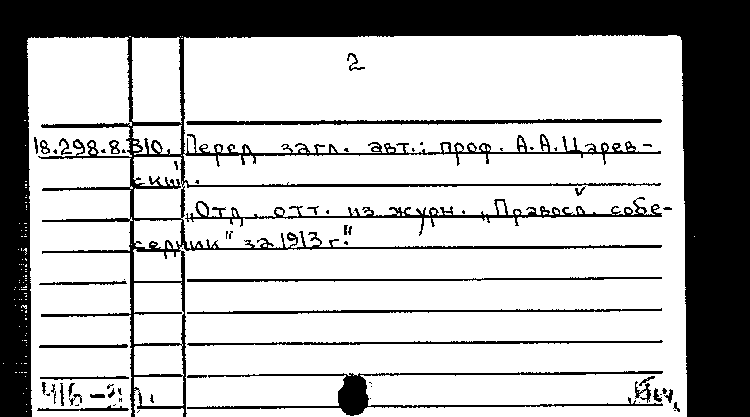 2
18.298.8.310. Перед загл. авт.: проф. А.А.Царев-
ский.
„Отд. отт. из журн. „Правосл. собе-
седник" за 1913 г."